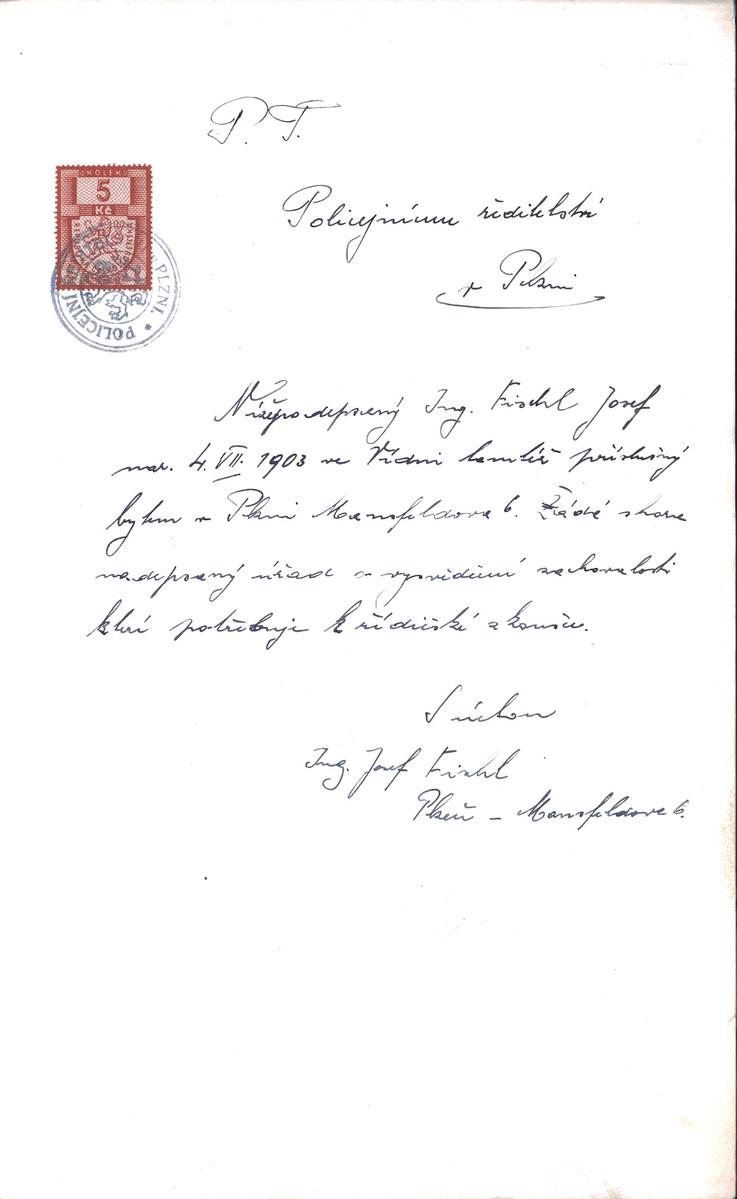 P. T.
KOLEK
5
Kč
POLICEJNÍ PLZNI.
Policejnímu ředitelství
v Plzni
Nížepodepsaný Ing. Fischl Josef
nar. 4. VII. 1903 ve Vídni tamtéž příslušný
bytem v Plzni Mansfeldova 6. Žádá shora
nadepsaný úřad o vysvědčení zachovalosti
kteří potřebuje k řidičské zkoušce.
S úctou
Ing. Josef Fischl
Plzeň - Mansfeldova 6.